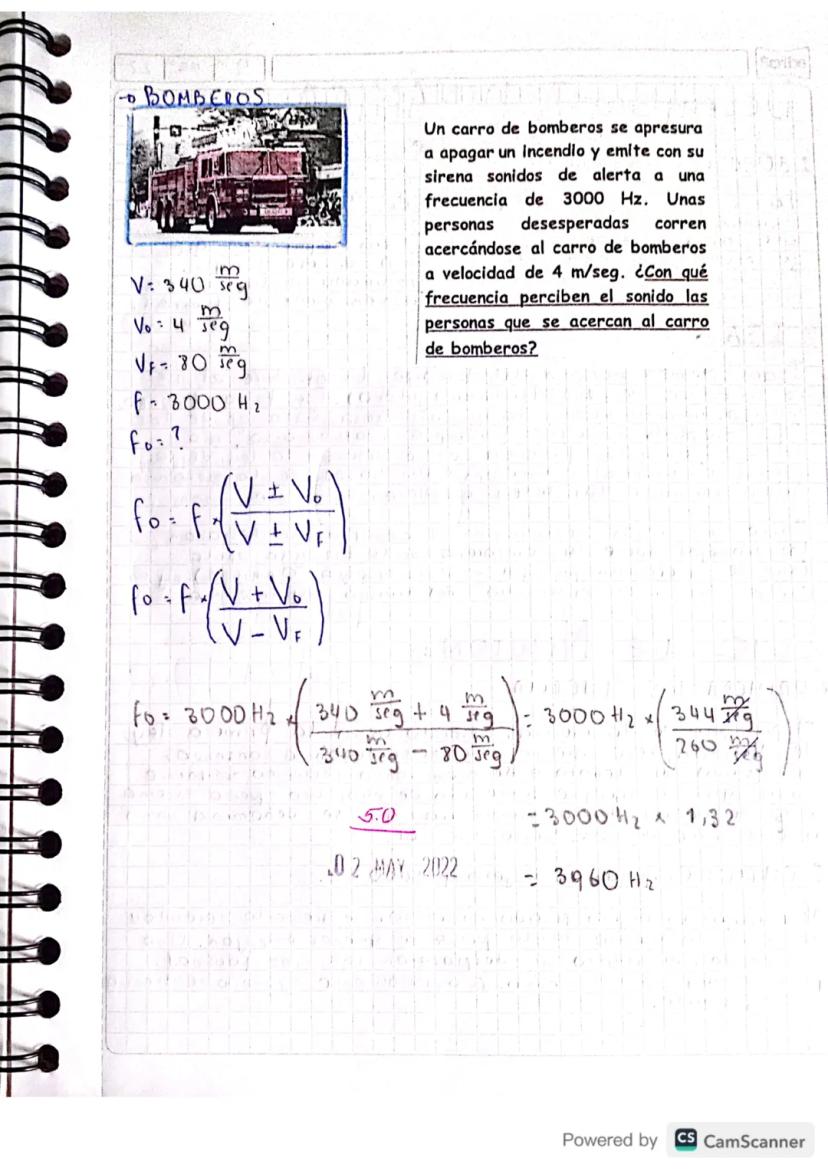 Scribe
→ BOMBEROS
Un carro de bomberos se apresura
a apagar un incendio y emite con su
sirena sonidos de alerta a una
frecuencia de 3000 Hz. Unas
personas desesperadas corren
acercándose al carro de bomberos
a velocidad de 4 m/seg. ¿Con qué
frecuencia perciben el sonido las
personas que se acercan al carro
de bomberos?
V= 340 m/seg
Vo = 4 m/seg
VF = 80 m/seg
f = 3000 Hz
fo = ?
fo = f × ((V ± Vo)/(V ± VF))
fo = f × ((V + Vo)/(V - VF))
fo = 3000 Hz × ((340 m/seg + 4 m/seg)/(340 m/seg - 80 m/seg)) = 3000 Hz × ((344 m/seg)/(260 m/seg))
5.0
= 3000 Hz × 1,32
02 MAY 2022
= 3960 Hz
Powered by CS CamScanner